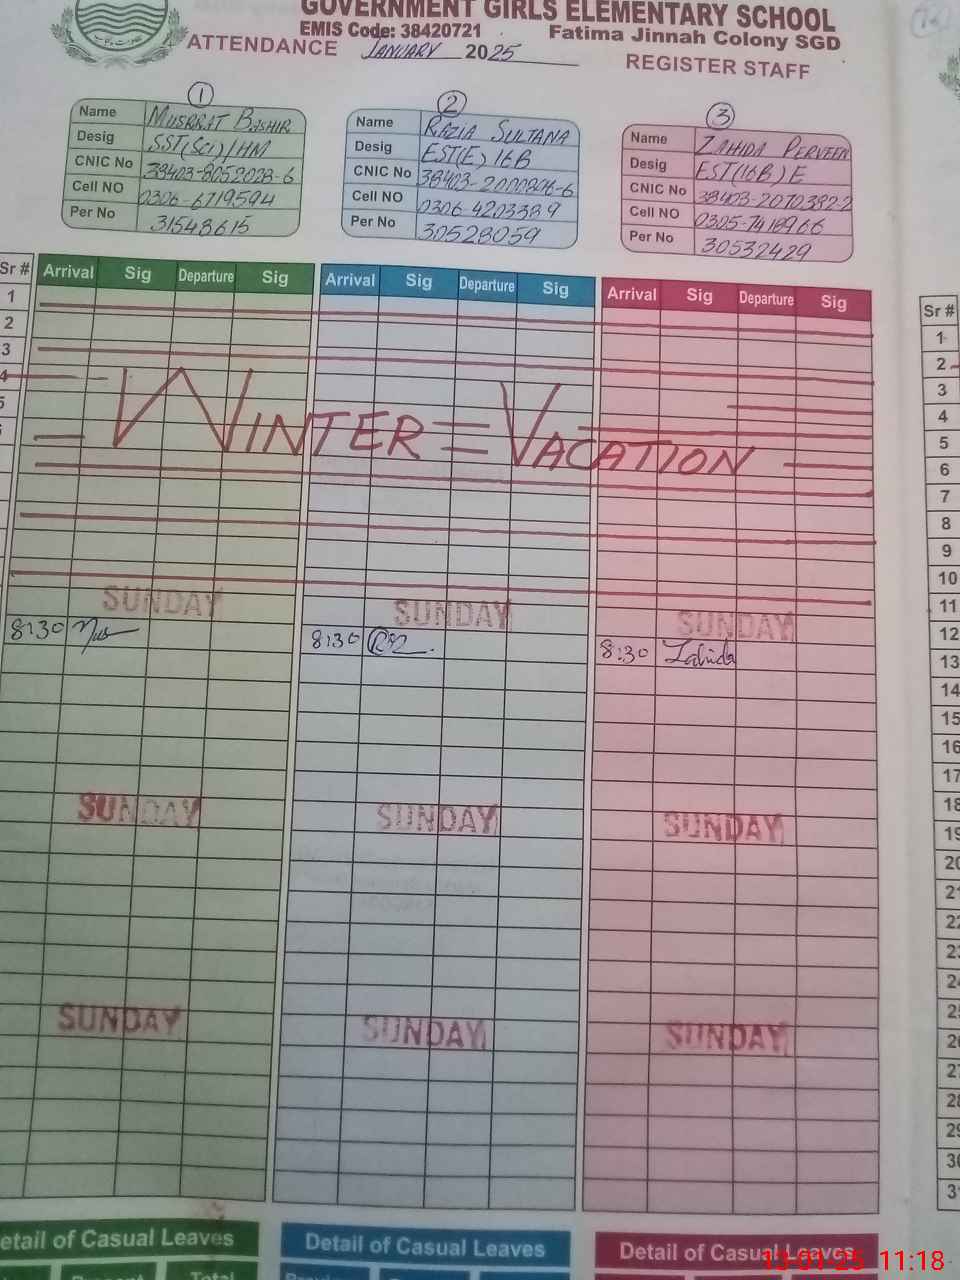 GOVERNMENT GIRLS ELEMENTARY SCHOOL
EMIS Code: 38420721 Fatima Jinnah Colony SGD
ATTENDANCE JANUARY 2025 REGISTER STAFF
1
Name MUSRRAT BASHIR
Desig SST(SCI)/HM
CNIC No 38403-8052028-6
Cell NO 0306-6719594
Per No 31548615
2
Name RAZIA SULTANA
Desig EST(E) 16B
CNIC No
Cell NO 0306-4203389
Per No 30528059
3
Name ZAHIDA PERVEEN
Desig EST(16B)E
CNIC No
Cell NO 0305-7418966
Per No 30532429
Sr # Arrival Sig Departure Sig Arrival Sig Departure Sig Arrival Sig Departure Sig Sr #
1
2
3
4
5
WINTER = VACATION
SUNDAY SUNDAY SUNDAY
8:30 8:30 8:30 Zahida
SUNDAY SUNDAY SUNDAY
SUNDAY SUNDAY SUNDAY
1
2
3
4
5
6
7
8
9
10
11
12
13
14
15
16
17
18
19
20
21
22
23
24
25
26
27
28
29
30
31
etail of Casual Leaves Detail of Casual Leaves Detail of Casual Leaves
Total
13-01-25 11:18